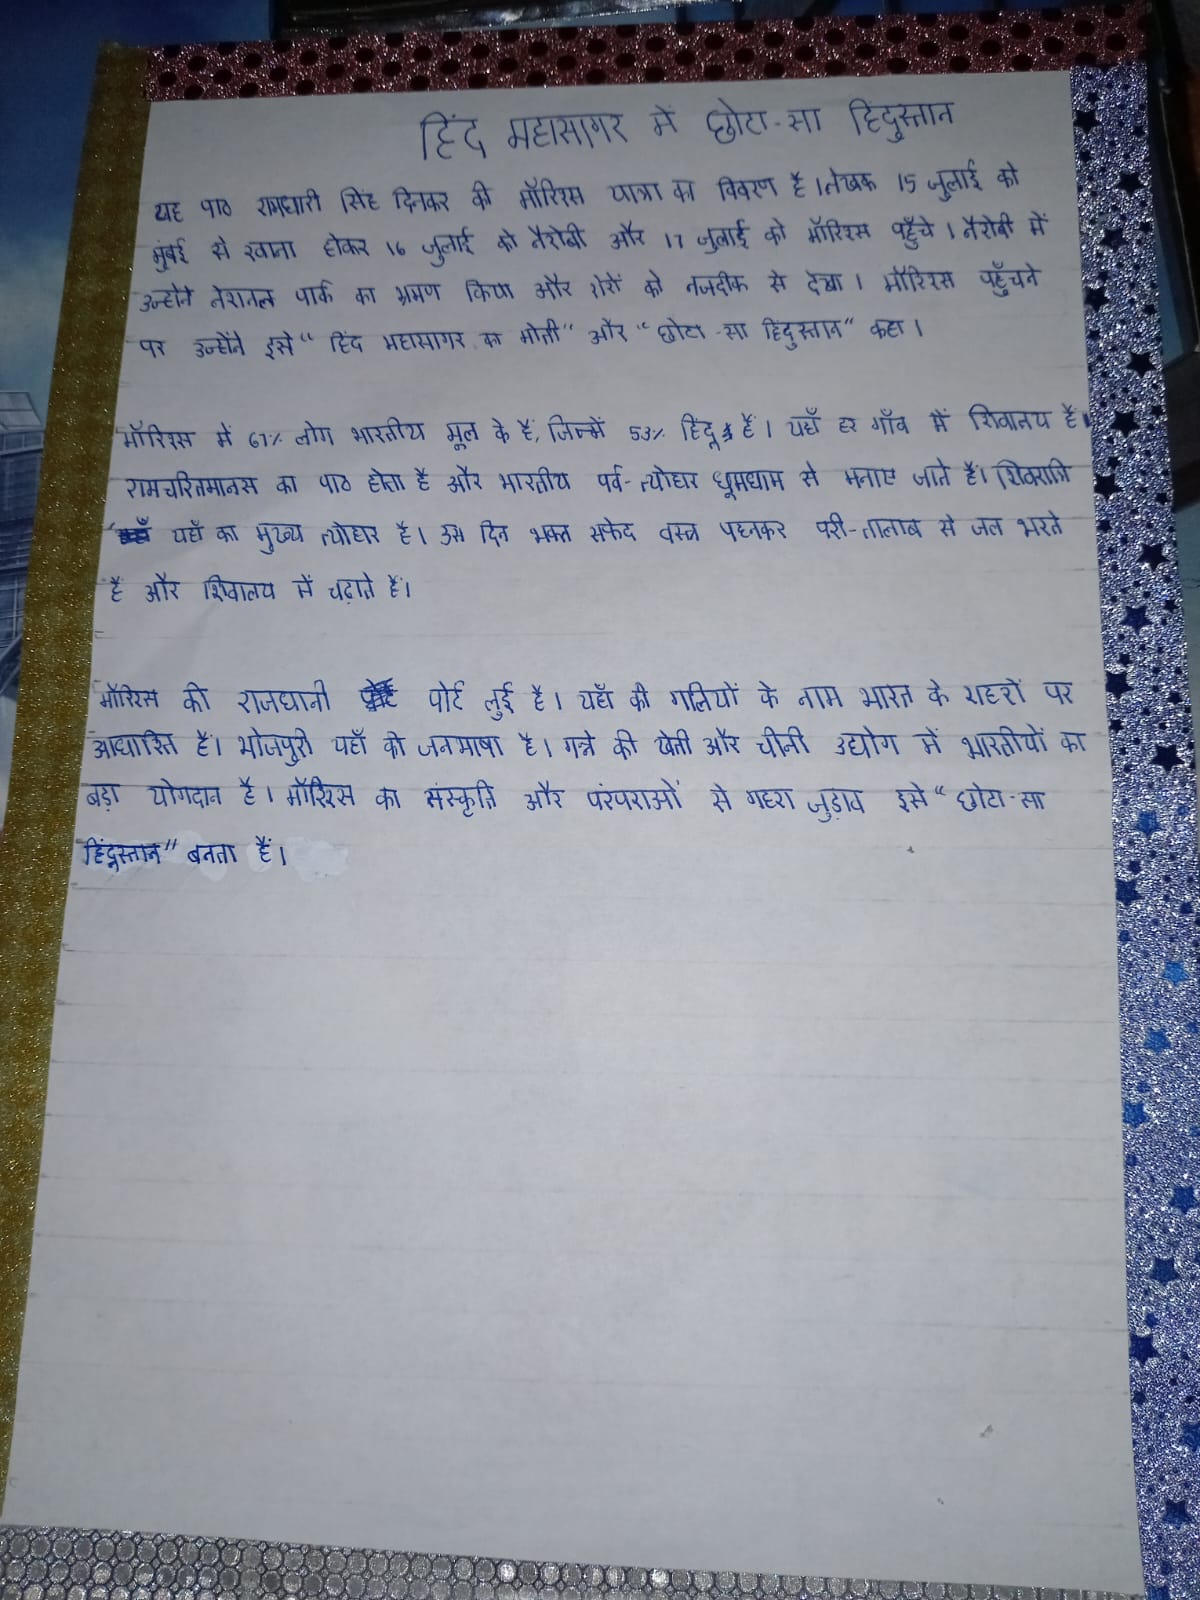 हिंद महासागर में छोटा-सा हिंदुस्तान
यह पाठ रामधारी सिंह दिनकर की मॉरिशस यात्रा का विवरण है। लेखक 15 जुलाई को
मुंबई से रवाना होकर 16 जुलाई को नैरोबी और 17 जुलाई को मॉरिशस पहुँचे। नैरोबी में
उन्होंने नेशनल पार्क का भ्रमण किया और शेरों को नजदीक से देखा। मॉरिशस पहुँचने
पर उन्होंने इसे "हिंद महासागर का मोती" और "छोटा-सा हिंदुस्तान" कहा।
मॉरिशस में 67% लोग भारतीय मूल के हैं, जिनमें 53% हिंदू हैं। यहाँ हर गाँव में शिवालय है।
रामचरितमानस का पाठ होता है और भारतीय पर्व-त्योहार धूमधाम से मनाए जाते हैं। शिवरात्रि
यहाँ का मुख्य त्योहार है। उस दिन भक्त सफेद वस्त्र पहनकर परी-तालाब से जल भरते
हैं और शिवालय में चढ़ाते हैं।
मॉरिशस की राजधानी पोर्ट लुई है। यहाँ की गलियों के नाम भारत के शहरों पर
आधारित हैं। भोजपुरी यहाँ की जनभाषा है। गन्ने की खेती और चीनी उद्योग में भारतीयों का
बड़ा योगदान है। मॉरिशस का संस्कृति और परंपराओं से गहरा जुड़ाव इसे "छोटा-सा
हिंदुस्तान" बनता है।